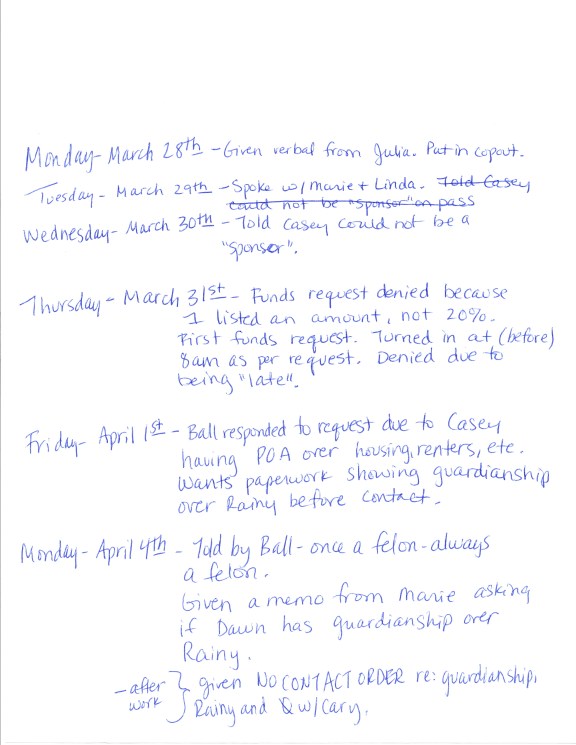 Monday- March 28th - Given verbal from Julia. Put in copout.
Tuesday - March 29th - Spoke w/ Marie + Linda. Told Casey
could not be "sponser" on pass
Wednesday- March 30th - Told Casey could not be a
"sponser".
Thursday - March 31st - Funds request denied because
I listed an amount, not 20%.
First funds request. Turned in at (before)
8am as per request. Denied due to
being "late".
Friday- April 1st - Ball responded to request due to Casey
having POA over housing, renters, etc.
Wants paperwork showing guardianship
over Rainy before contact.
Monday- April 4th - Told by Ball- once a felon-always
a felon.
Given a memo from Marie asking
if Dawn has guardianship over
Rainy.
- after work } given NO CONTACT ORDER re: guardianship,
Rainy and & w/ Cary.